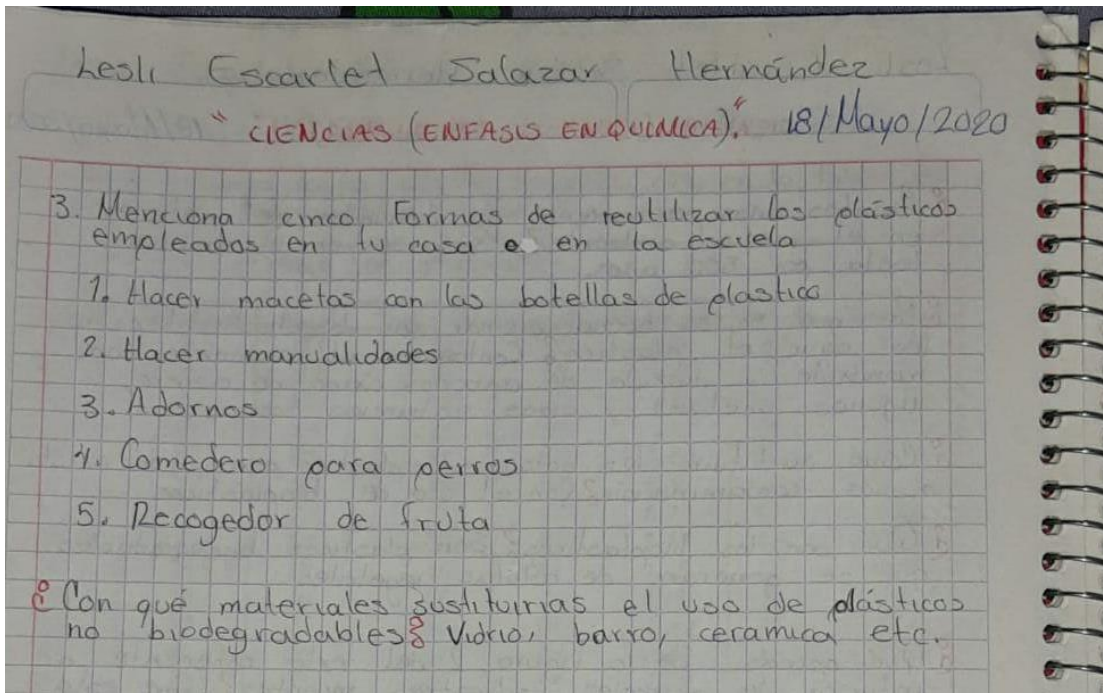 Lesli Escarlet Salazar Hernández
"CIENCIAS (ENFASIS EN QUIMICA)." 18/Mayo/2020
3. Menciona cinco formas de reutilizar los plásticos
empleados en tu casa o en la escuela
1. Hacer macetas con las botellas de plastico
2. Hacer manualidades
3. Adornos
4. Comedero para perros
5. Recogedor de fruta
¿Con qué materiales sustituirias el uso de plásticos
no biodegradables? Vidrio, barro, ceramica etc.